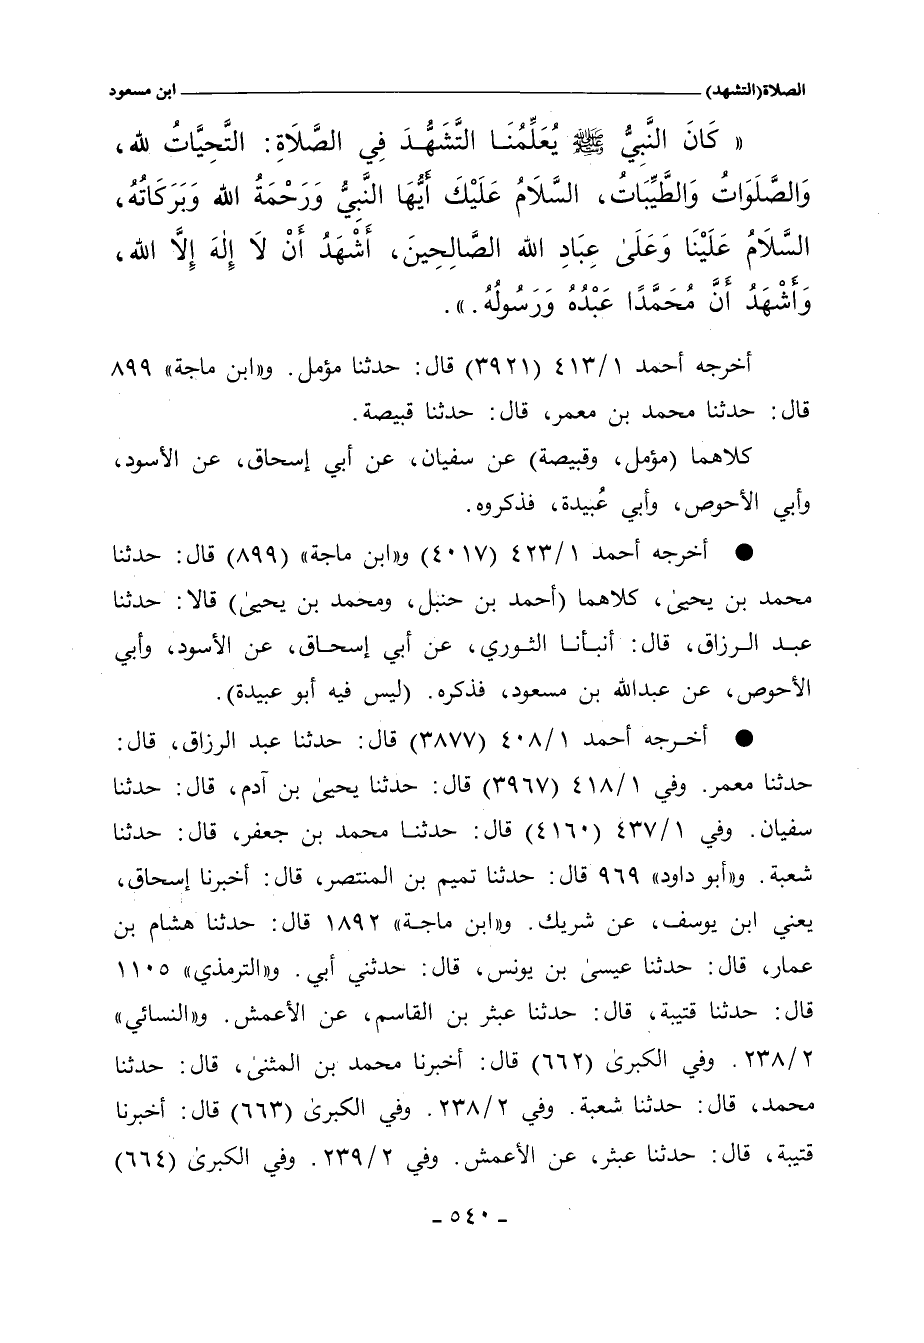 الصلاة(التشهد) ـــــــــ ابن مسعود
« كَانَ النَّبِيُّ ﷺ يُعَلِّمُنَا التَّشَهُّدَ فِي الصَّلَاةِ: التَّحِيَّاتُ لله،
وَالصَّلَوَاتُ وَالطَّيِّبَاتُ، السَّلَامُ عَلَيْكَ أَيُّهَا النَّبِيُّ وَرَحْمَةُ الله وَبَرَكَاتُهُ،
السَّلَامُ عَلَيْنَا وَعَلَىٰ عِبَادِ الله الصَّالِحِينَ، أَشْهَدُ أَنْ لَا إِلٰهَ إِلَّا الله،
وَأَشْهَدُ أَنَّ مُحَمَّدًا عَبْدُهُ وَرَسُولُهُ.».
أخرجه أحمد ٤١٣/١ (٣٩٢١) قال: حدثنا مؤمل. و«ابن ماجة» ٨٩٩
قال: حدثنا محمد بن معمر، قال: حدثنا قبيصة.
كلاهما (مؤمل، وقبيصة) عن سفيان، عن أبي إسحاق، عن الأسود،
وأبي الأحوص، وأبي عُبيدة، فذكروه.
● أخرجه أحمد ٤٢٣/١ (٤٠١٧) و«ابن ماجة» (٨٩٩) قال: حدثنا
محمد بن يحيىٰ، كلاهما (أحمد بن حنبل، ومحمد بن يحيىٰ) قالا: حدثنا
عبد الرزاق، قال: أنبأنا الثوري، عن أبي إسحاق، عن الأسود، وأبي
الأحوص، عن عبدالله بن مسعود، فذكره. (ليس فيه أبو عبيدة).
● أخرجه أحمد ٤٠٨/١ (٣٨٧٧) قال: حدثنا عبد الرزاق، قال:
حدثنا معمر. وفي ٤١٨/١ (٣٩٦٧) قال: حدثنا يحيىٰ بن آدم، قال: حدثنا
سفيان. وفي ٤٣٧/١ (٤١٦٠) قال: حدثنا محمد بن جعفر، قال: حدثنا
شعبة. و«أبو داود» ٩٦٩ قال: حدثنا تميم بن المنتصر، قال: أخبرنا إسحاق،
يعني ابن يوسف، عن شريك. و«ابن ماجة» ١٨٩٢ قال: حدثنا هشام بن
عمار، قال: حدثنا عيسىٰ بن يونس، قال: حدثني أبي. و«الترمذي» ١١٠٥
قال: حدثنا قتيبة، قال: حدثنا عبثر بن القاسم، عن الأعمش. و«النسائي»
٢٣٨/٢. وفي الكبرىٰ (٦٦٢) قال: أخبرنا محمد بن المثنىٰ، قال: حدثنا
محمد، قال: حدثنا شعبة. وفي ٢٣٨/٢. وفي الكبرىٰ (٦٦٣) قال: أخبرنا
قتيبة، قال: حدثنا عبثر، عن الأعمش. وفي ٢٣٩/٢. وفي الكبرىٰ (٦٦٤)
- ٥٤٠ -